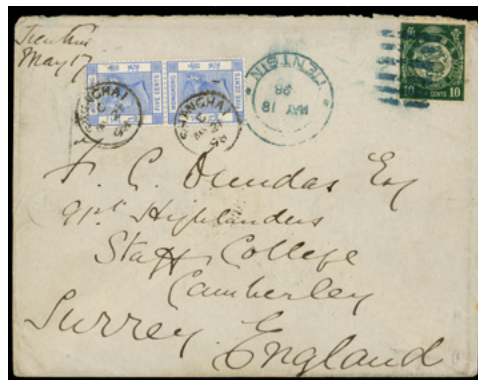 Tientsin
May 17
HONGKONG
FIVE CENTS
HONGKONG
FIVE CENTS
SHANGHAI
SHANGHAI
TIENTSIN
MAY
18
98
10 CENTS 10
F. C. Dundas Esq
91st Highlanders
Staff College
Camberley
Surrey. England